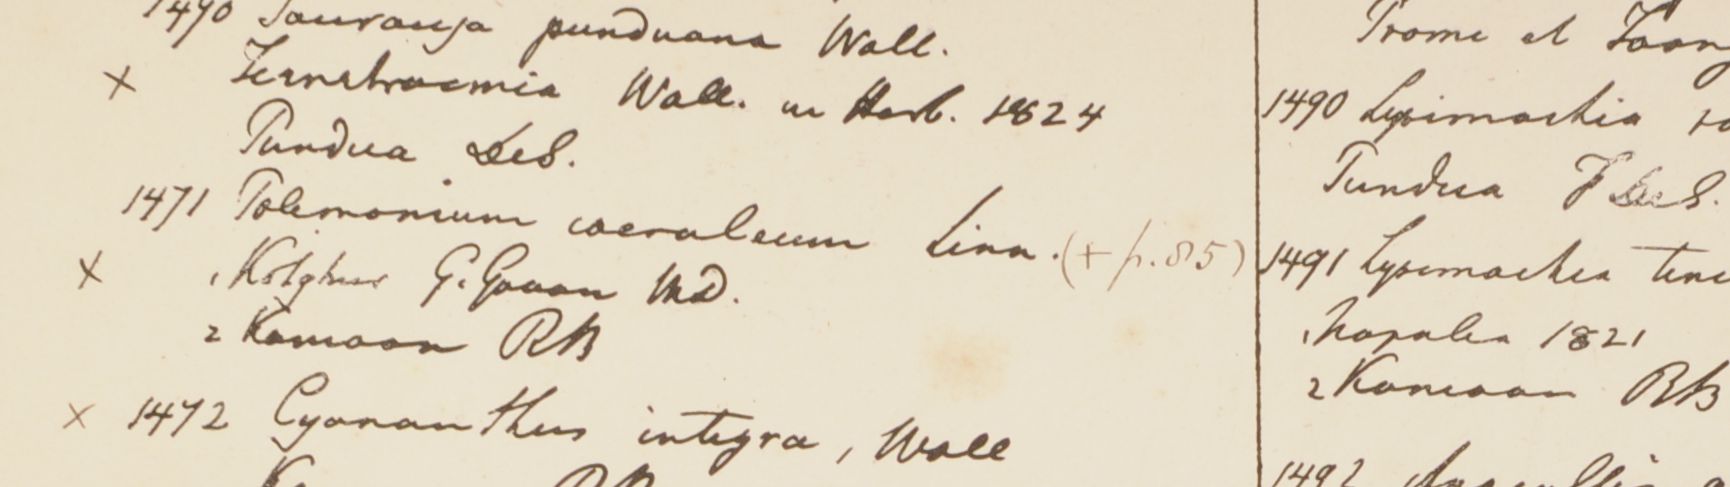 1470 Saurauja punduana Wall.
x Ternstroemia Wall. in Herb. 1824
Pundua
1471 Polemonium coeruleum Linn. (+ p. 85)
x 1 G. Govan MD.
2 Kamaon RB
x 1472 Cyananthus integra, Wall
RB
Prome et
1490 Lysimachia
Pundua
1491 Lysimachia
1 Napalia 1821
2 Kamaon RB
1492